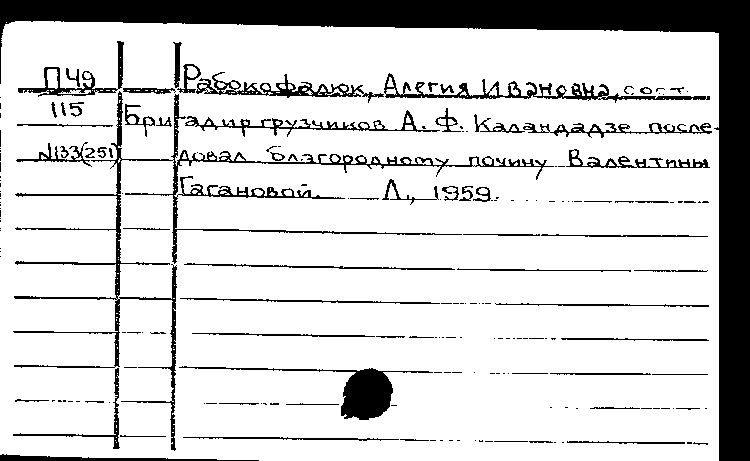 П49 Рабокофалюк, Алегия Ивановна, сост.
115 Бригадир грузчиков А. Ф. Каландадзе после-
№133(251) довал благородному почину Валентины
Гагановой. Л., 1959.